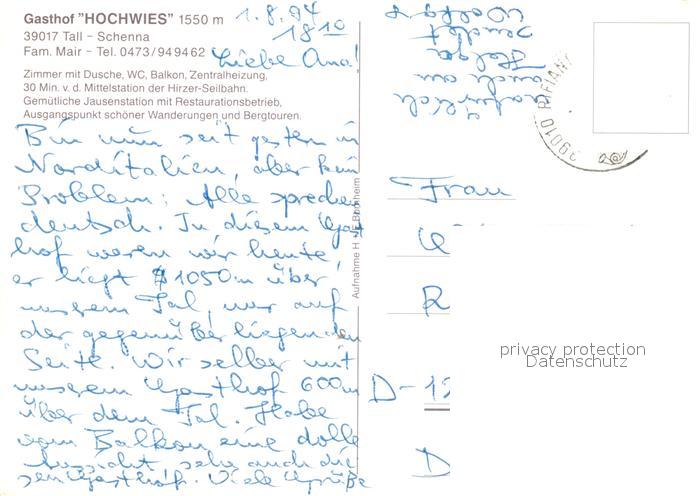 Gasthof "HOCHWIES" 1550 m
39017 Tall - Schenna
Fam. Mair - Tel. 0473/949462
Zimmer mit Dusche, WC, Balkon, Zentralheizung,
30 Min. v. d. Mittelstation der Hirzer-Seilbahn.
Gemütliche Jausenstation mit Restaurationsbetrieb,
Ausgangspunkt schöner Wanderungen und Bergtouren.
1.8.94
18 10
Liebe Ana!
Bin nun seit gestern in
Norditalien, aber kein
Problem: Alle sprechen
deutsch. In diesem Gast
hof waren wir heute,
er liegt 1050m über
unserem Tal, nur auf
der gegenüberliegenden
Seite. Wir selber mit
unserem Gasthof 600m
über dem Tal. Habe
vom Balkon eine dolle
Aussicht, sehr auch die
sen Gasthof. Viele Grüße
natürlich
auch an
Helga
sendet
Aufnahme H
39010 RIFIANO
Frau
R
D-1
D
privacy protection
Datenschutz